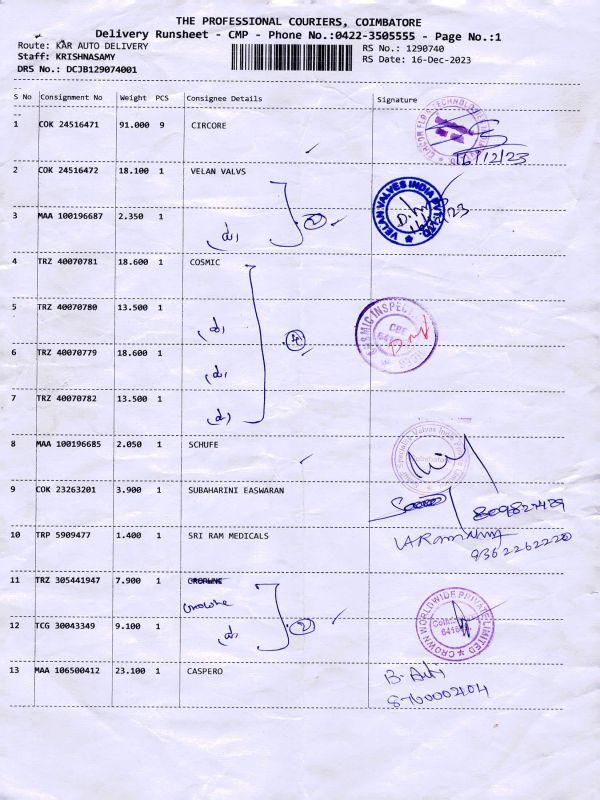 THE PROFESSIONAL COURIERS, COIMBATORE
Delivery Runsheet - CMP - Phone No.:0422-3505555 - Page No.:1
Route: KAR AUTO DELIVERY
RS No.: 1290740
Staff: KRISHNASAMY
RS Date: 16-Dec-2023
DRS No.: DCJB129074001
S No Consignment No Weight PCS Consignee Details Signature
1 COK 24516471 91.000 9 CIRCORE
16/12/23
2 COK 24516472 18.100 1 VELAN VALVS
VELAN VALVES INDIA PVT LTD
3 MAA 100196687 2.350 1
2
4 TRZ 40070781 18.600 1 COSMIC
5 TRZ 40070780 13.500 1
COSMIC INSPECT
CBE
4
6 TRZ 40070779 18.600 1
7 TRZ 40070782 13.500 1
8 MAA 100196685 2.050 1 SCHUFE
9 COK 23263201 3.900 1 SUBAHARINI EASWARAN
809827489
10 TRP 5909477 1.400 1 SRI RAM MEDICALS
9362262220
11 TRZ 305441947 7.900 1 CROPWNE
Crowne
2
CROWN WORLDWIDE PRIVATE LIMITED
12 TCG 30043349 9.100 1
13 MAA 106500412 23.100 1 CASPERO
8760002404